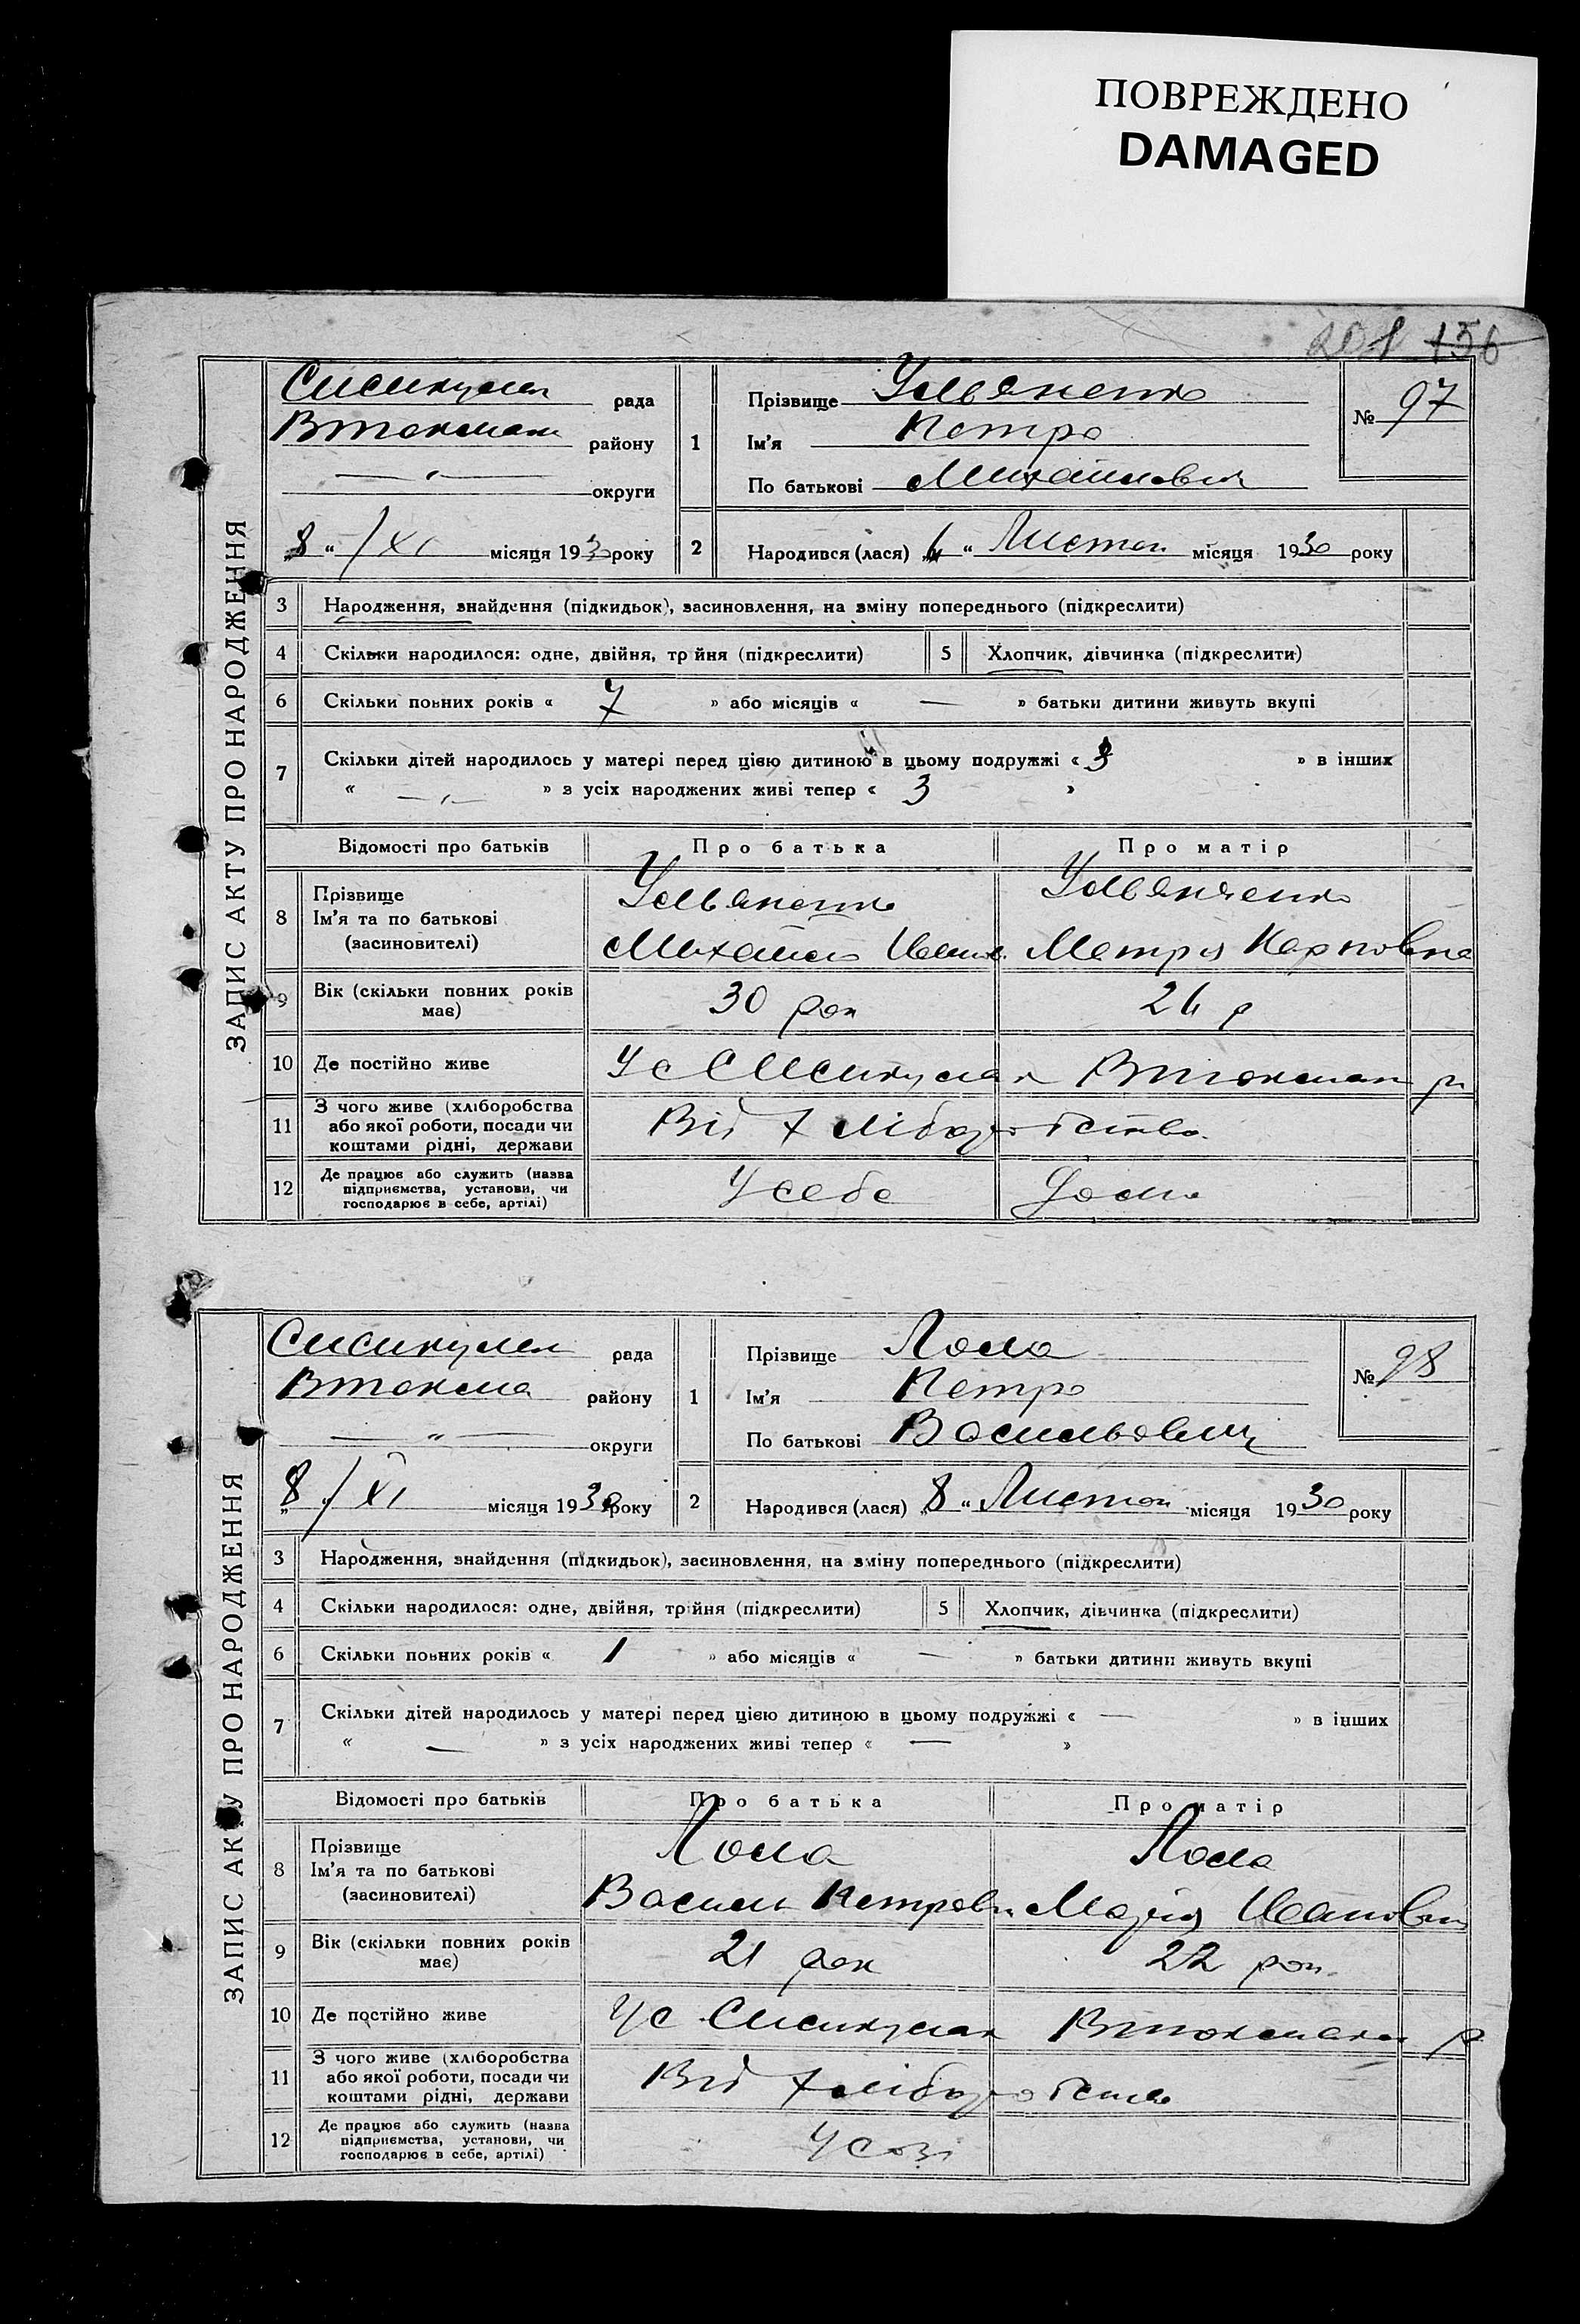 ПОВРЕЖДЕНО
DAMAGED
201 156
ЗАПИС АКТУ ПРО НАРОДЖЕННЯ
Сисикулак рада
Втокмак району
— „ — округи
„8“ /XI місяця 1930 року
1 Прізвище Ульяненко
Ім'я Петро
По батькові Михайлович
№ 97
2 Народився (лася) „ “ Листоп місяця 1930 року
3 Народження, знайдення (підкидьок), засиновлення, на зміну попереднього (підкреслити)
4 Скільки народилося: одне, двійня, трійня (підкреслити) 5 Хлопчик, дівчинка (підкреслити)
6 Скільки повних років « 7 » або місяців « — » батьки дитини живуть вкупі
7 Скільки дітей народилось у матері перед цією дитиною в цьому подружжі « 3 » в інших
« — „ — » з усіх народжених живі тепер « 3 »
Відомості про батьків Про батька Про матір
8 Прізвище Ульяненко Ульяненко
Ім'я та по батькові
(засиновителі) Михайло Иван. Мотря Карповна
9 Вік (скільки повних років має) 30 рок 26 р
10 Де постійно живе У с Сисикулак Втокмак р
11 З чого живе (хліборобства або якої роботи, посади чи коштами рідні, держави Від хліборобства
12 Де працює або служить (назва підприємства, установи, чи господарює в себе, артілі) У себе Дома
ЗАПИС АКТУ ПРО НАРОДЖЕННЯ
Сисикулак рада
Втокма району
— „ — округи
„8“ /XI місяця 1930 року
1 Прізвище Лола
Ім'я Петро
По батькові Васильович
№ 98
2 Народився (лася) „8“ Листоп місяця 1930 року
3 Народження, знайдення (підкидьок), засиновлення, на зміну попереднього (підкреслити)
4 Скільки народилося: одне, двійня, трійня (підкреслити) 5 Хлопчик, дівчинка (підкреслити)
6 Скільки повних років « 1 » або місяців « — » батьки дитини живуть вкупі
7 Скільки дітей народилось у матері перед цією дитиною в цьому подружжі « — » в інших
« — » з усіх народжених живі тепер « — »
Відомості про батьків Про батька Про матір
8 Прізвище Лола Лола
Ім'я та по батькові
(засиновителі) Василь Петрови Марія Ивановн
9 Вік (скільки повних років має) 21 рок 22 рок
10 Де постійно живе У с Сисикулак Втокмак р
11 З чого живе (хліборобства або якої роботи, посади чи коштами рідні, держави Від хліборобства
12 Де працює або служить (назва підприємства, установи, чи господарює в себе, артілі) У созі